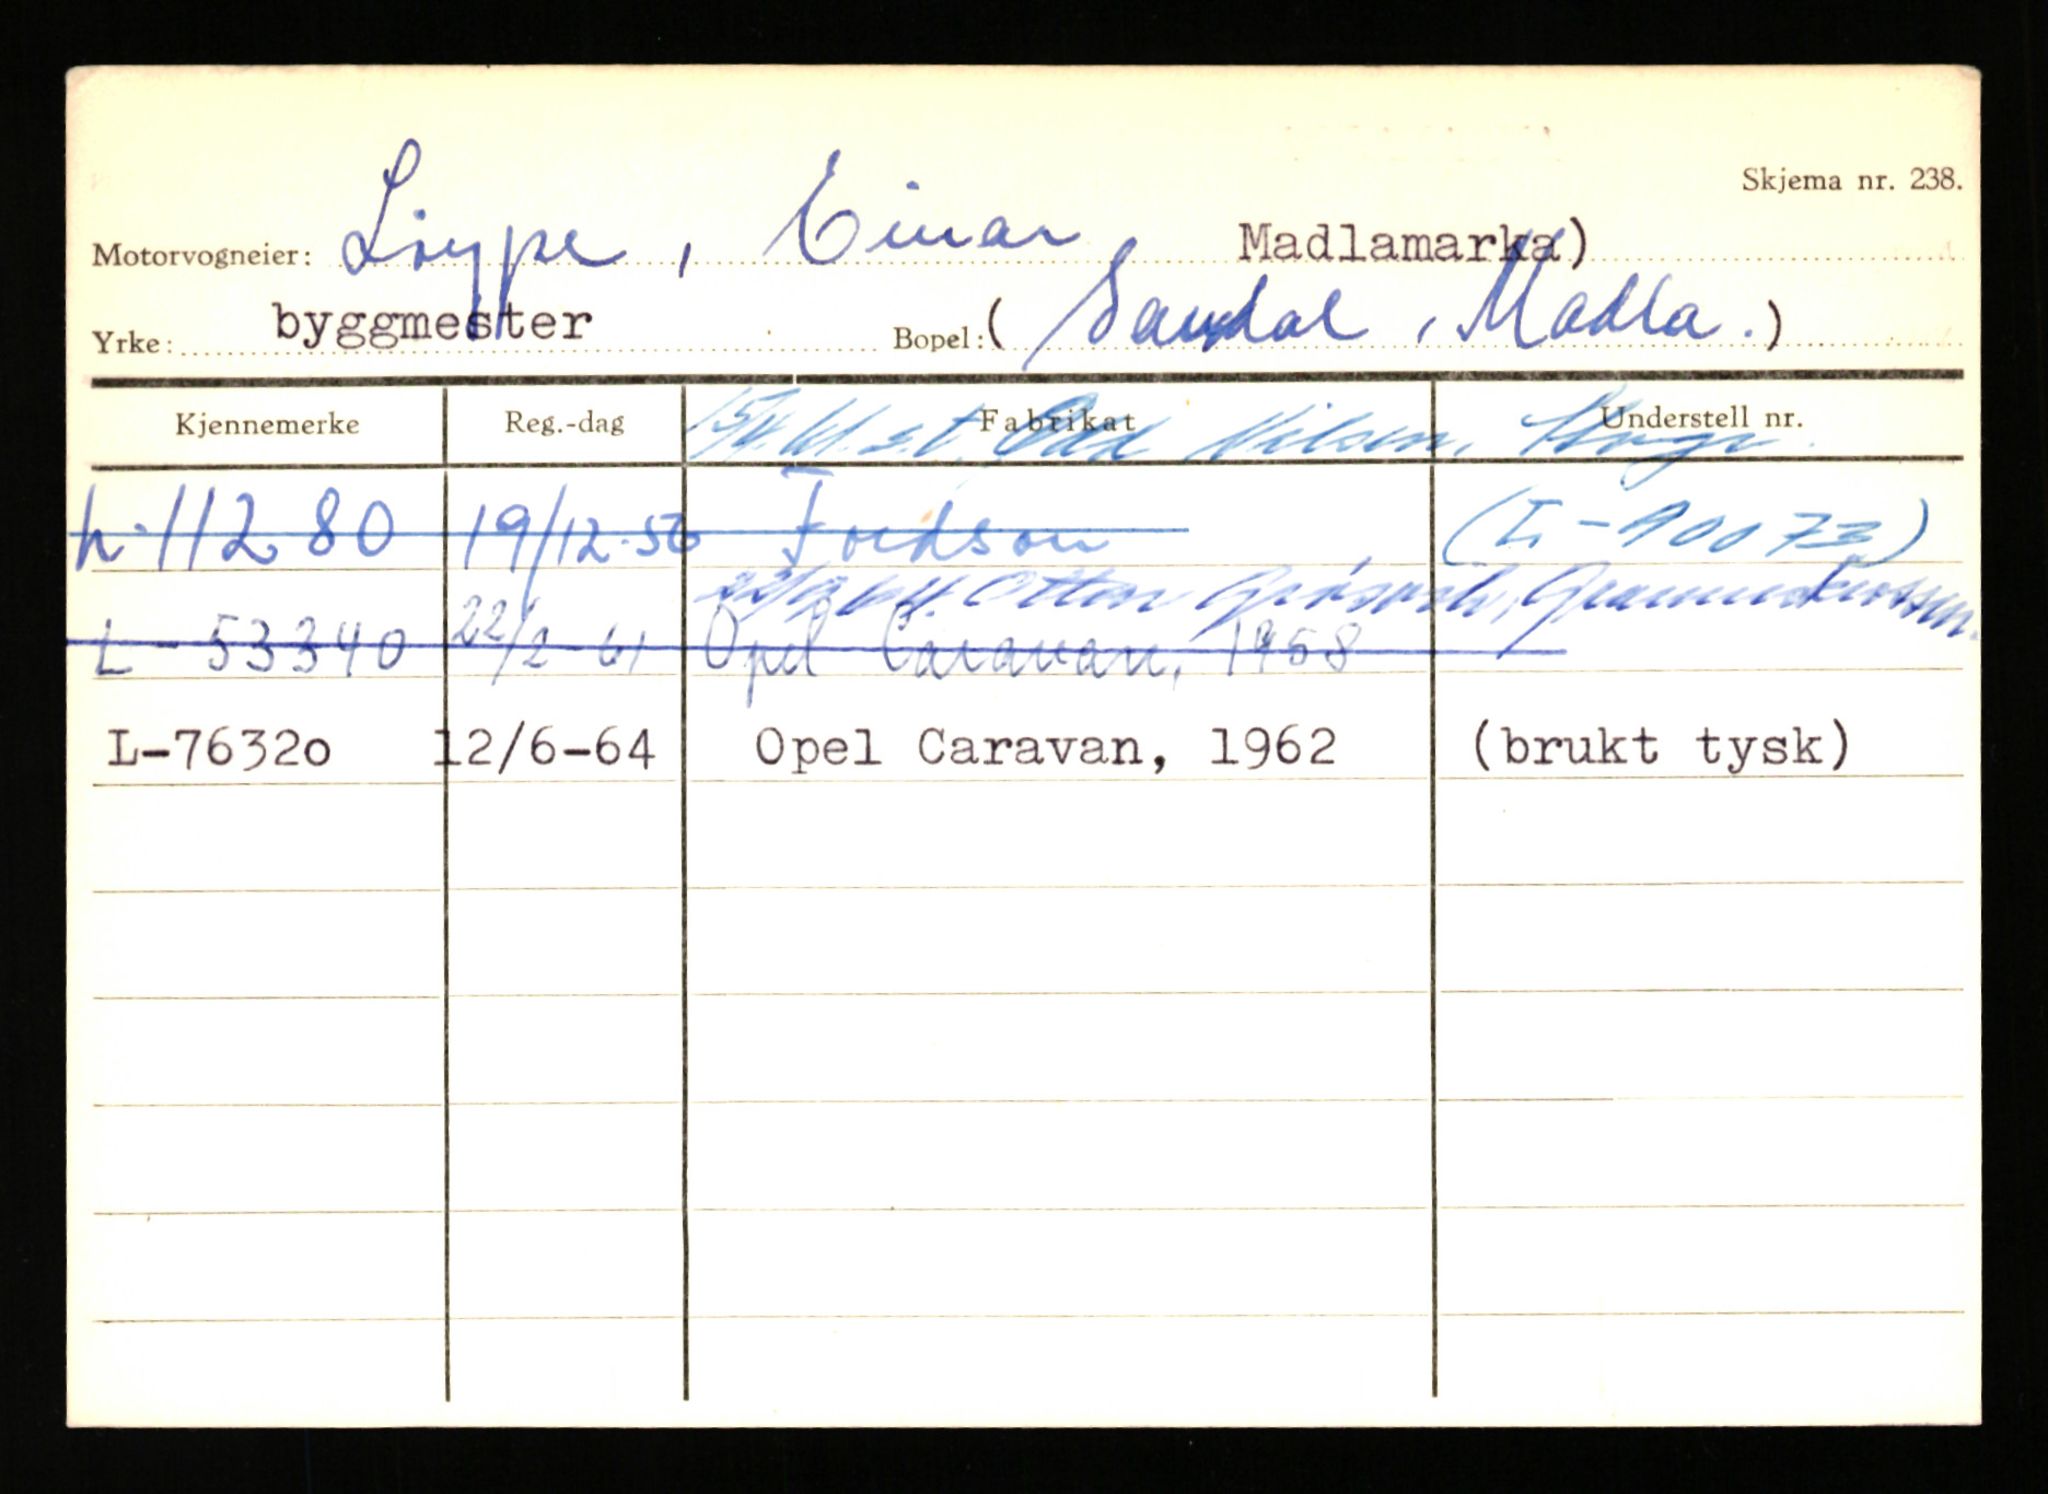 Skjema nr. 238.
Motorvogneier: Løype, Einar Madlamarka)
Yrke: byggmester Bopel: ( Sandal, Madla.)
Kjennemerke Reg.-dag Fabrikat Understell nr.
15/4.61. s.t. Odd Nilsen,
L-11280 19/12-56 Fordson (L-90073)
Otton
L-53340 22/2-61 Opel Caravan, 1958
L-7632o 12/6-64 Opel Caravan, 1962 (brukt tysk)